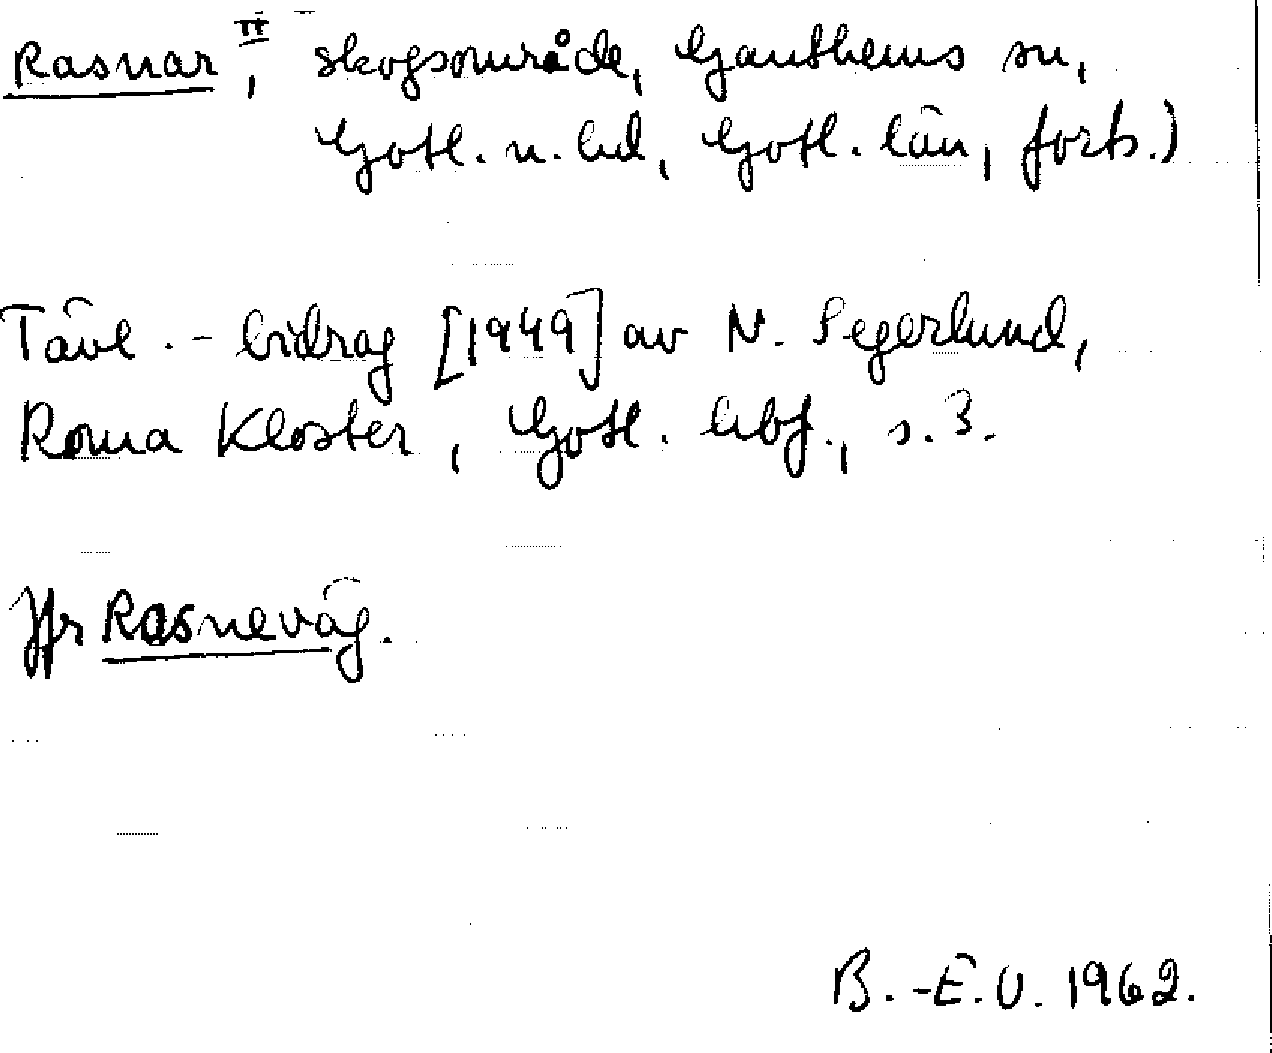 Rasnar II, skogsområde, Ganthems sn,
Gotl. n. hd, Gotl. län, forts.)
Tävl.-bidrag [1949] av N. Segerlund,
Roma Kloster, Gotl. hbf., s. 3.
Jfr Rasneväg.
B.-E.U. 1962.